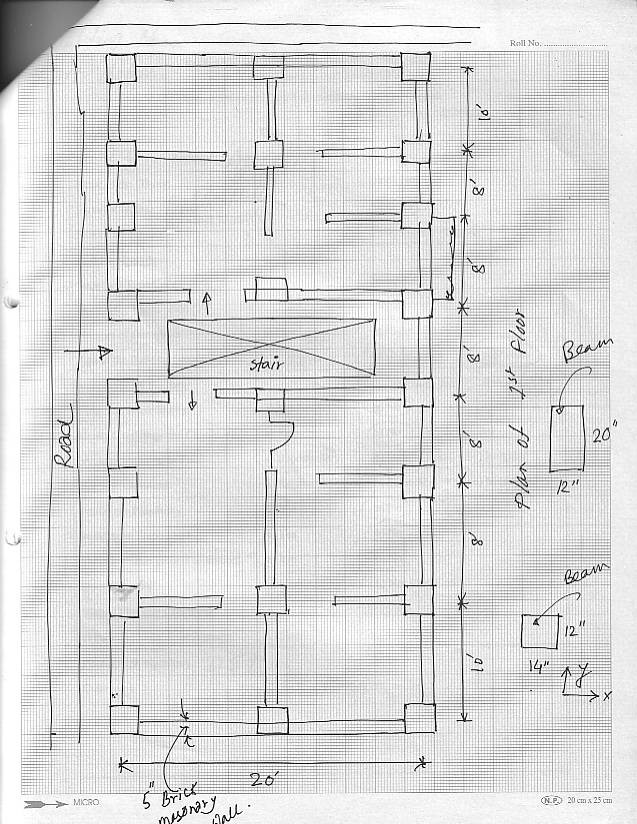 Roll No.
10'
8'
8'
8'
8'
8'
10'
Stair
Road
Plan of 1st Floor
Beam
20"
12"
Beam
12"
14"
y
x
20'
5" Brick
masonary
wall.
MICRO
N.P. 20 cm x 25 cm